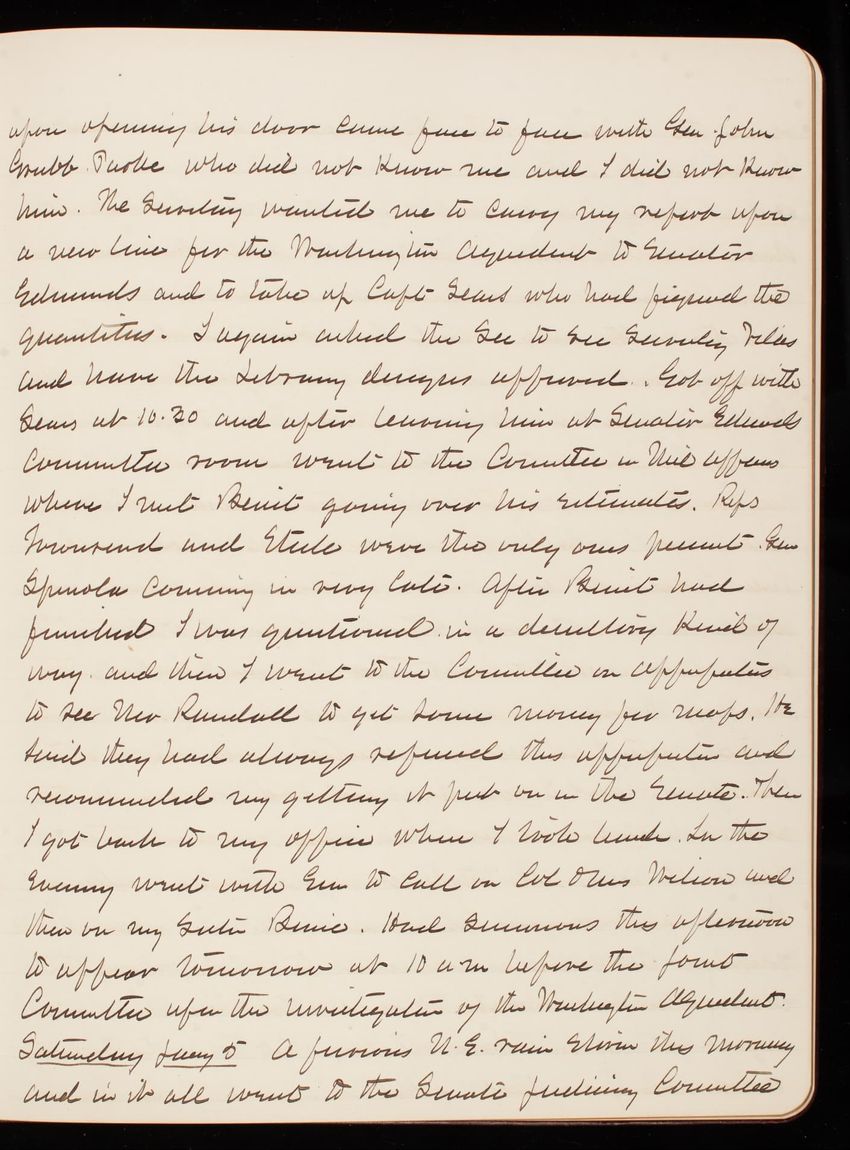 upon opening his door came face to face with Gen. John
Grubb Parke who did not know me and I did not know
him. The Secretary wanted me to carry my report upon
a new line for the Washington Aqueduct to Senator
Edmunds and to take up Capt Sears who had figured the
quantities. I again asked the Sec to see Secretary Vilas
and have the Library designs approved. Got off with
Sears at 10.30 and after leaving him at Senator Edmunds
Committee room went to the Committee on Mil affairs
where I met Benet going over his estimates. Reps
Townsend and Steele were the only ones present. Gen
Spinola coming in very late. After Benet had
finished I was questioned in a desultory kind of
way. and then I went to the Committee on appropriatns
to see Mr Randall to get some money for maps. He
said they had always refused this appropriatn and
recommended my getting it put on in the Senate. Then
I got back to my office where I took lunch. In the
Evening went with Gen to call on Col Wilson and
then on my Sister. Had summons this afternoon
to appear tomorrow at 10 am before the Joint
Committee upon the investigation of the Washington Aqueduct.
Saturday Jany 5 A furious N.E. rain storm this morning
and in it all went to the Senate Judiciary Committee